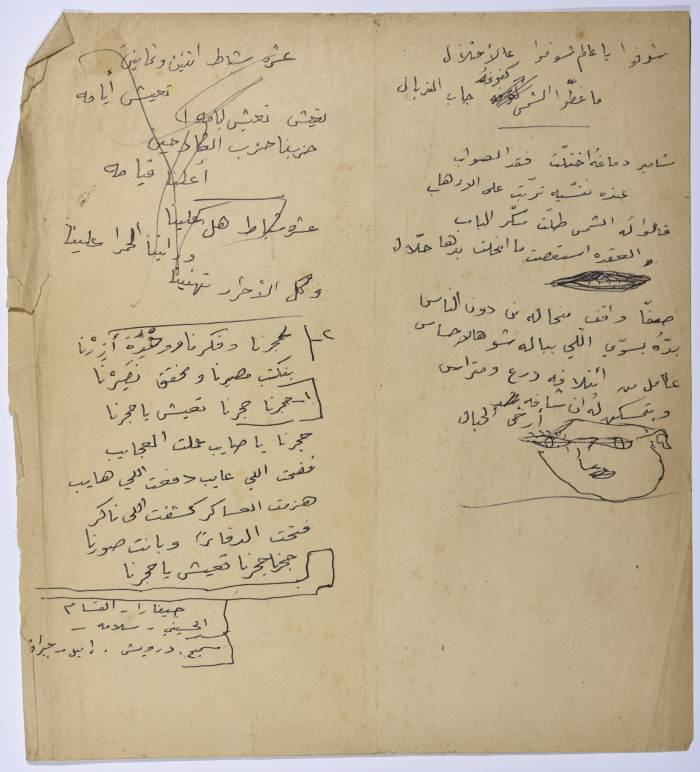 شوفوا يا عالم شوفوا عالأحتلال
ما غطّوا الشمس كفوفهُ جاب الغربال
شامير دماغهُ اختلّت فقد الصواب
عنده نفسيه تربّت على الارهاب
قالوا لهُ الشمس طلّت سكّر الباب
والعقده استعصت ما انحلت بدها حلّال
صعفا واقف منحاله من دون الناس
بدّهُ يسوّي اللّي بباله شو هالاحساس
عامل من ائتلافه درع ومتراس
وبتمسكن لهُ ان شافه
أرخى الحبال
عشره شباط اثنين وثمانين
تعيش أيامه
تعيش تعيش ايامه
حزبنا حزب الكادحين
أعلنا قيامه
عشره شباط هل علينا
ورايتنا الحمرا علينا
وكل الأحرار تهنينا
٢- حجرنا وفكرنا ووحْدة أزرْنا
بنكتب مصيرنا ونحقق نَصِرْنا
١- حجرنا حجرنا تعيش يا حجرنا
حجرنا يا صايب عملت العجايب
فضحت اللي عايب دفعت اللي هايب
هزمت العساكر كشفت اللي ناكر
فتحت الدفاتر وبانت صورنا
حجرنا حجرنا تعيش يا حجرنا
جيفارا - القسام
الحسيني - سلامه -
سميح . درويش .